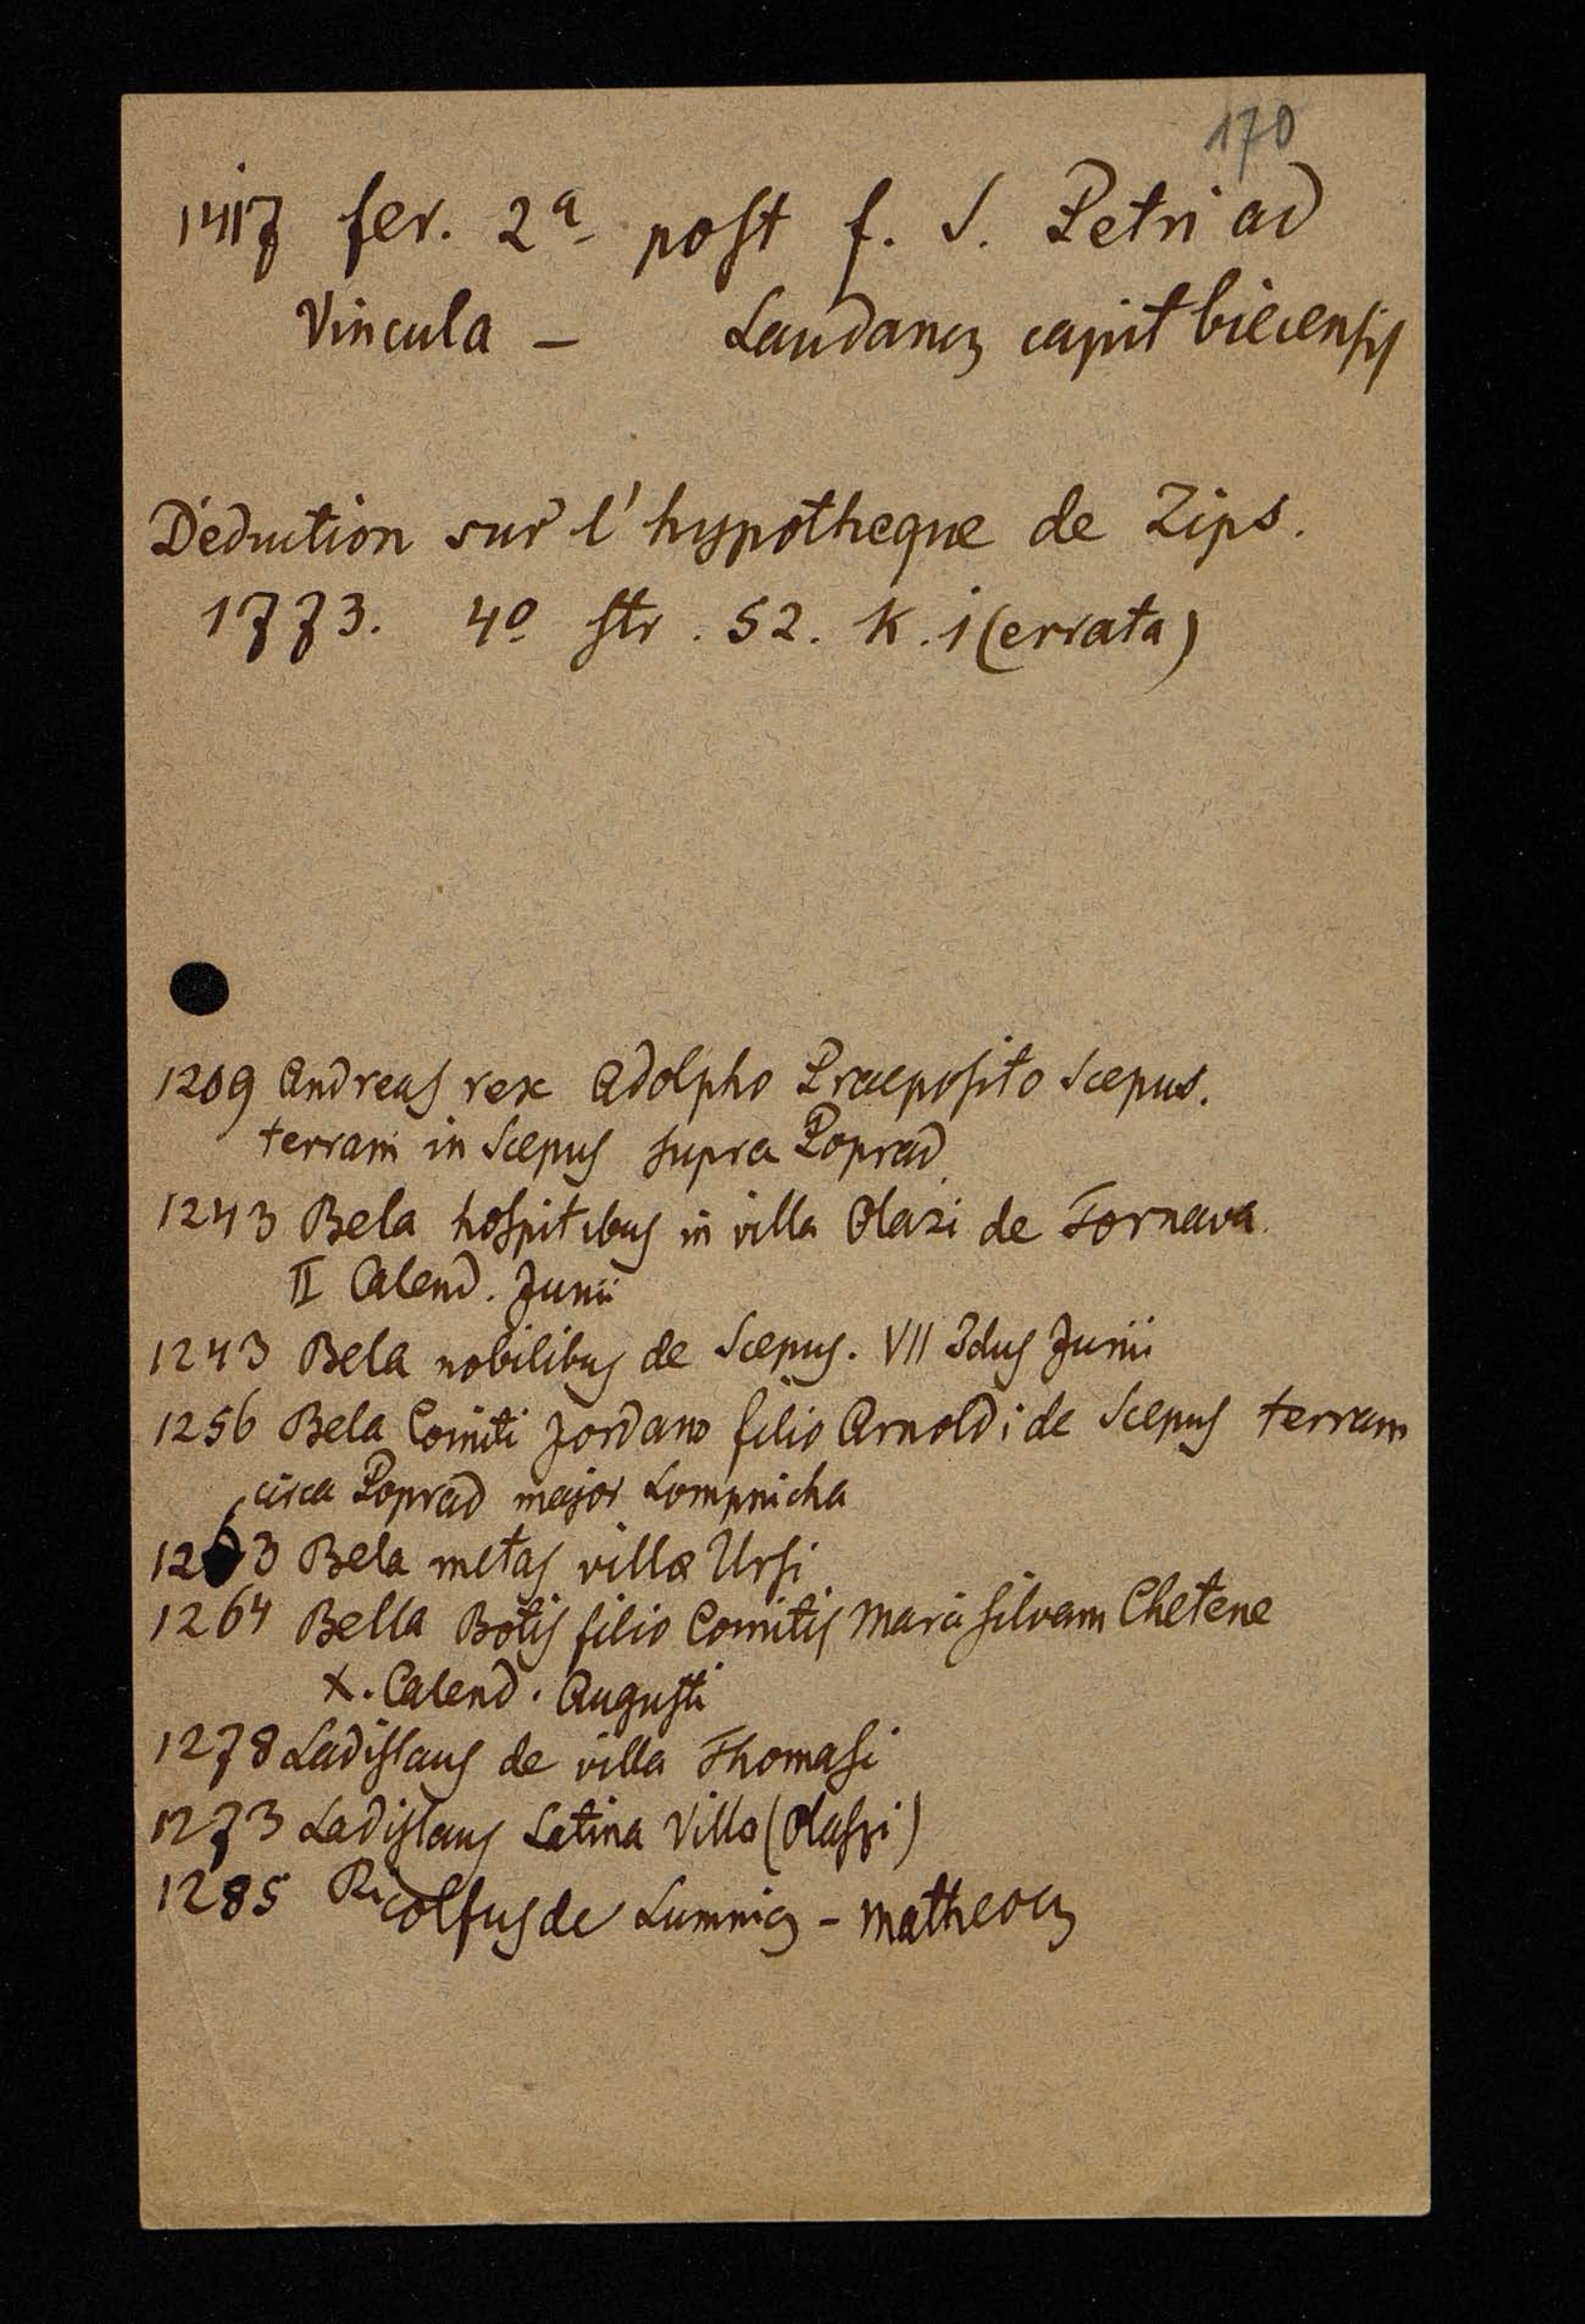 170
1417 fer. 2ª post f. S. Petri ad
Vincula – Laudancz capit biecensis
Déduction sur l'hypotheque de Zips.
1773. 4º str. 52. K. 1 (errata)
1209 Andreas rex Adolpho Praeposito Scepus.
terram in Scepus supra Poprad
1243 Bela hospitibus in villa Olazi de Tornava.
II Calend. Junii
1243 Bela nobilibus de Scepus. VII Idus Junii
1256 Bela Comiti Jordano filio Arnoldi de Scepus terram
circa Poprad major Lompnicha
1263 Bela metas villæ Ursi
1264 Bella Botis filio Comitis silvam Chetene
X. Calend. Augusti
1278 Ladislaus de villa Thomasi
1273 Ladislaus Latina Villa (Olaszi)
1285 Ricolfus de Lumnicz – Matheocz